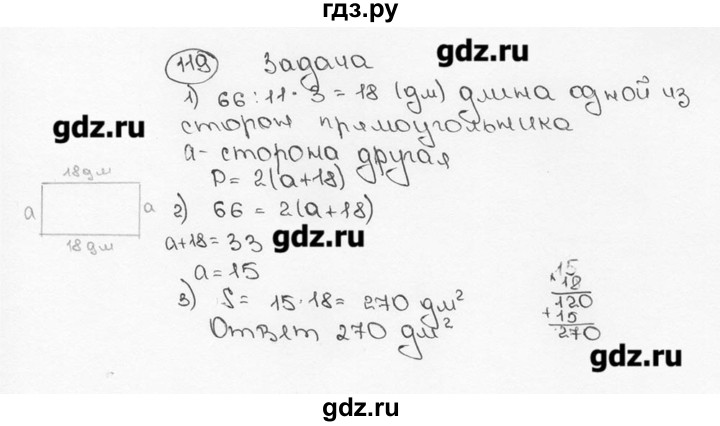 гдз.ру
119 Задача gdz.ru
1) 66:11·3=18 (дм) длина одной из
gdz.ru сторон прямоугольника
а- сторона другая
18дм P=2(a+18)
a a 2) 66=2(a+18)
18дм a+18=33 gdz.ru
a=15
3) S=15·18=270 дм²
Ответ 270 дм²
×15
18
120
+15
270
gdz.ru
gdz.ru